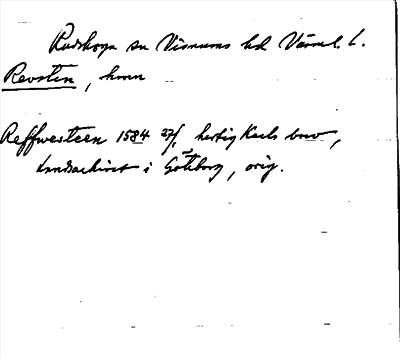 Rudskoga sn Visnums hd Värml. l.
Revsten, hmn
Reffwesteen 1584 27/1 hertig Karls brev,
landsarkivet i Göteborg, orig.